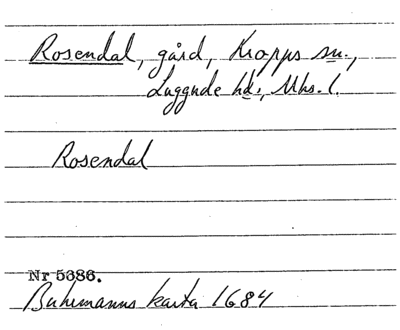 Rosendal, gård, Kropps sn.,
Luggude hd., Mhs. l.
Rosendal
Nr 5686.
Buhrmanns karta 1684